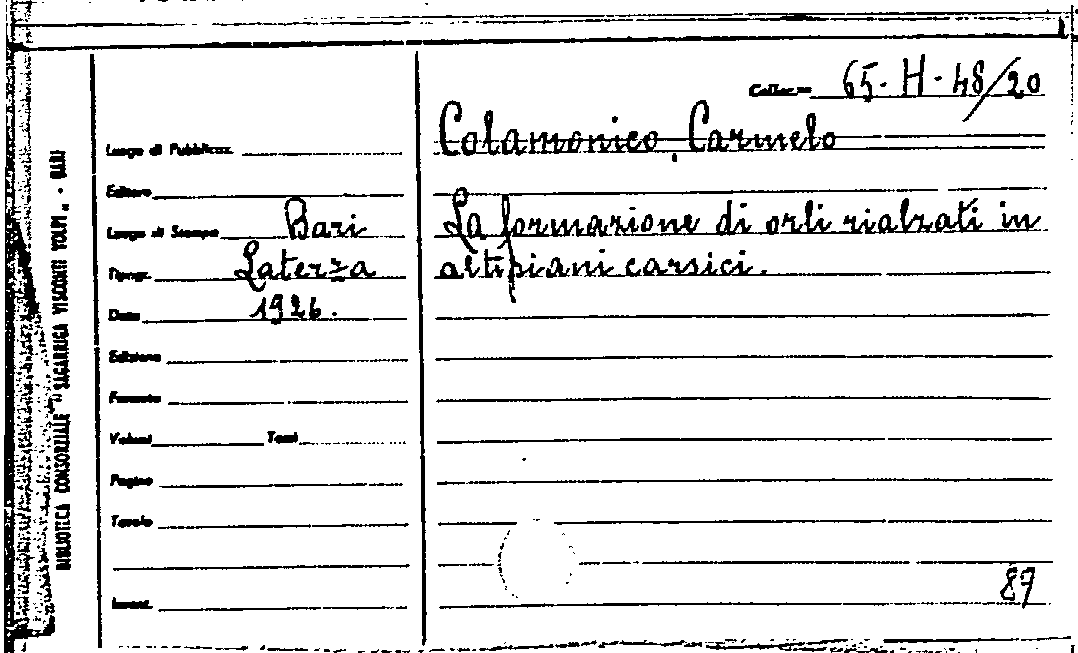 Colloc.ne 65-H-48/20
Colamonico, Carmelo
La formazione di orli rialzati in
altipiani carsici.
Luogo di Pubblicaz.
Editore
Luogo di Stampa Bari
Tipogr. Laterza
Data 1926.
Edizione
Formato
Volumi Tomi
Pagine
Tavole
Invent.
87
BIBLIOTECA CONSORZIALE "SAGARRIGA VISCONTI VOLPI„ - BARI